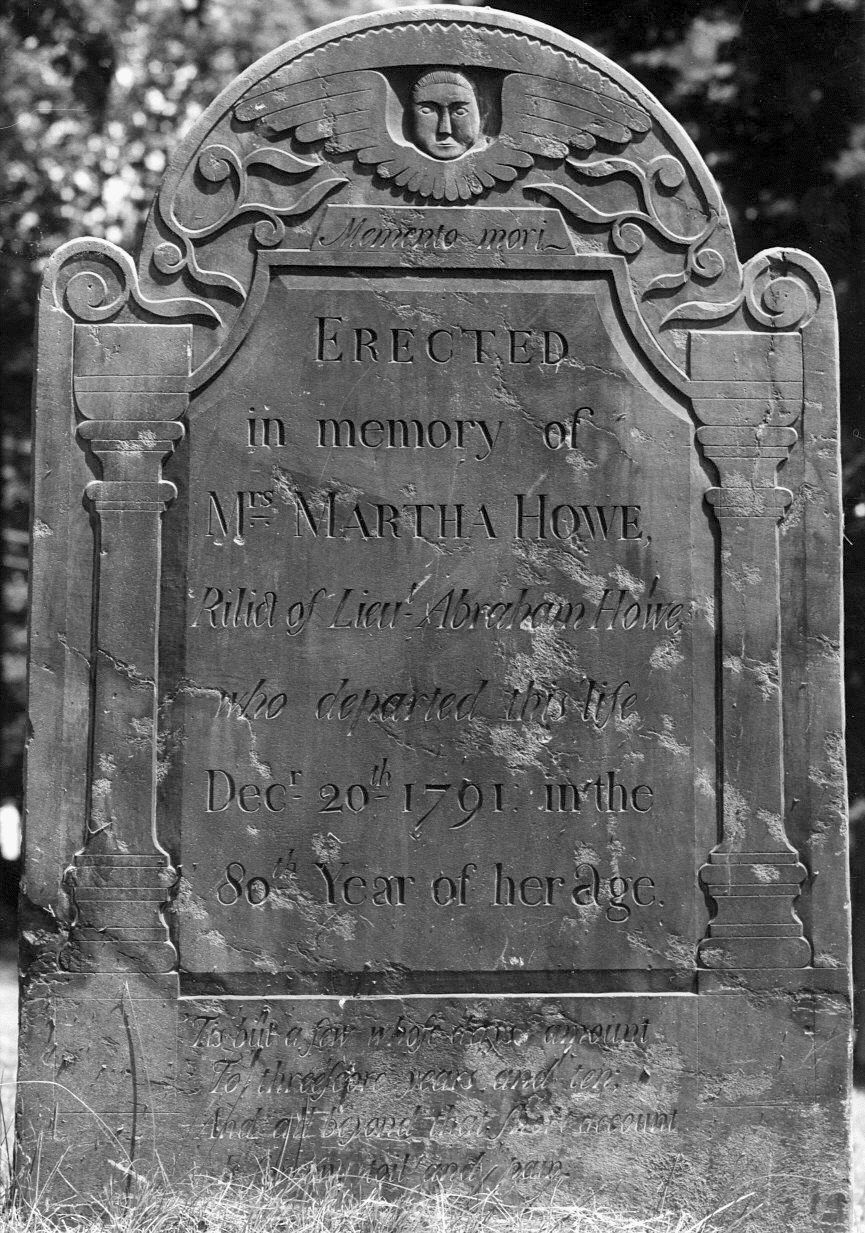 Memento mori
ERECTED
in memory of
Mrs MARTHA HOWE,
Rilict of Lieut Abraham Howe,
who departed this life
Decr 20th 1791. in the
80th Year of her age.
Tis but a few whose days amount
To threescore years and ten;
And all beyond that short account
toil and pain.